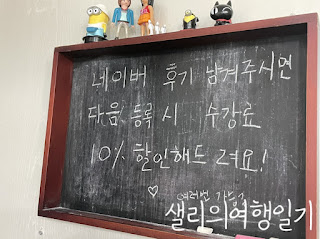 네이버 후기 남겨주시면
다음 등록 시 수강료
10% 할인해드려요!
여러번 가능
샐리의여행일기